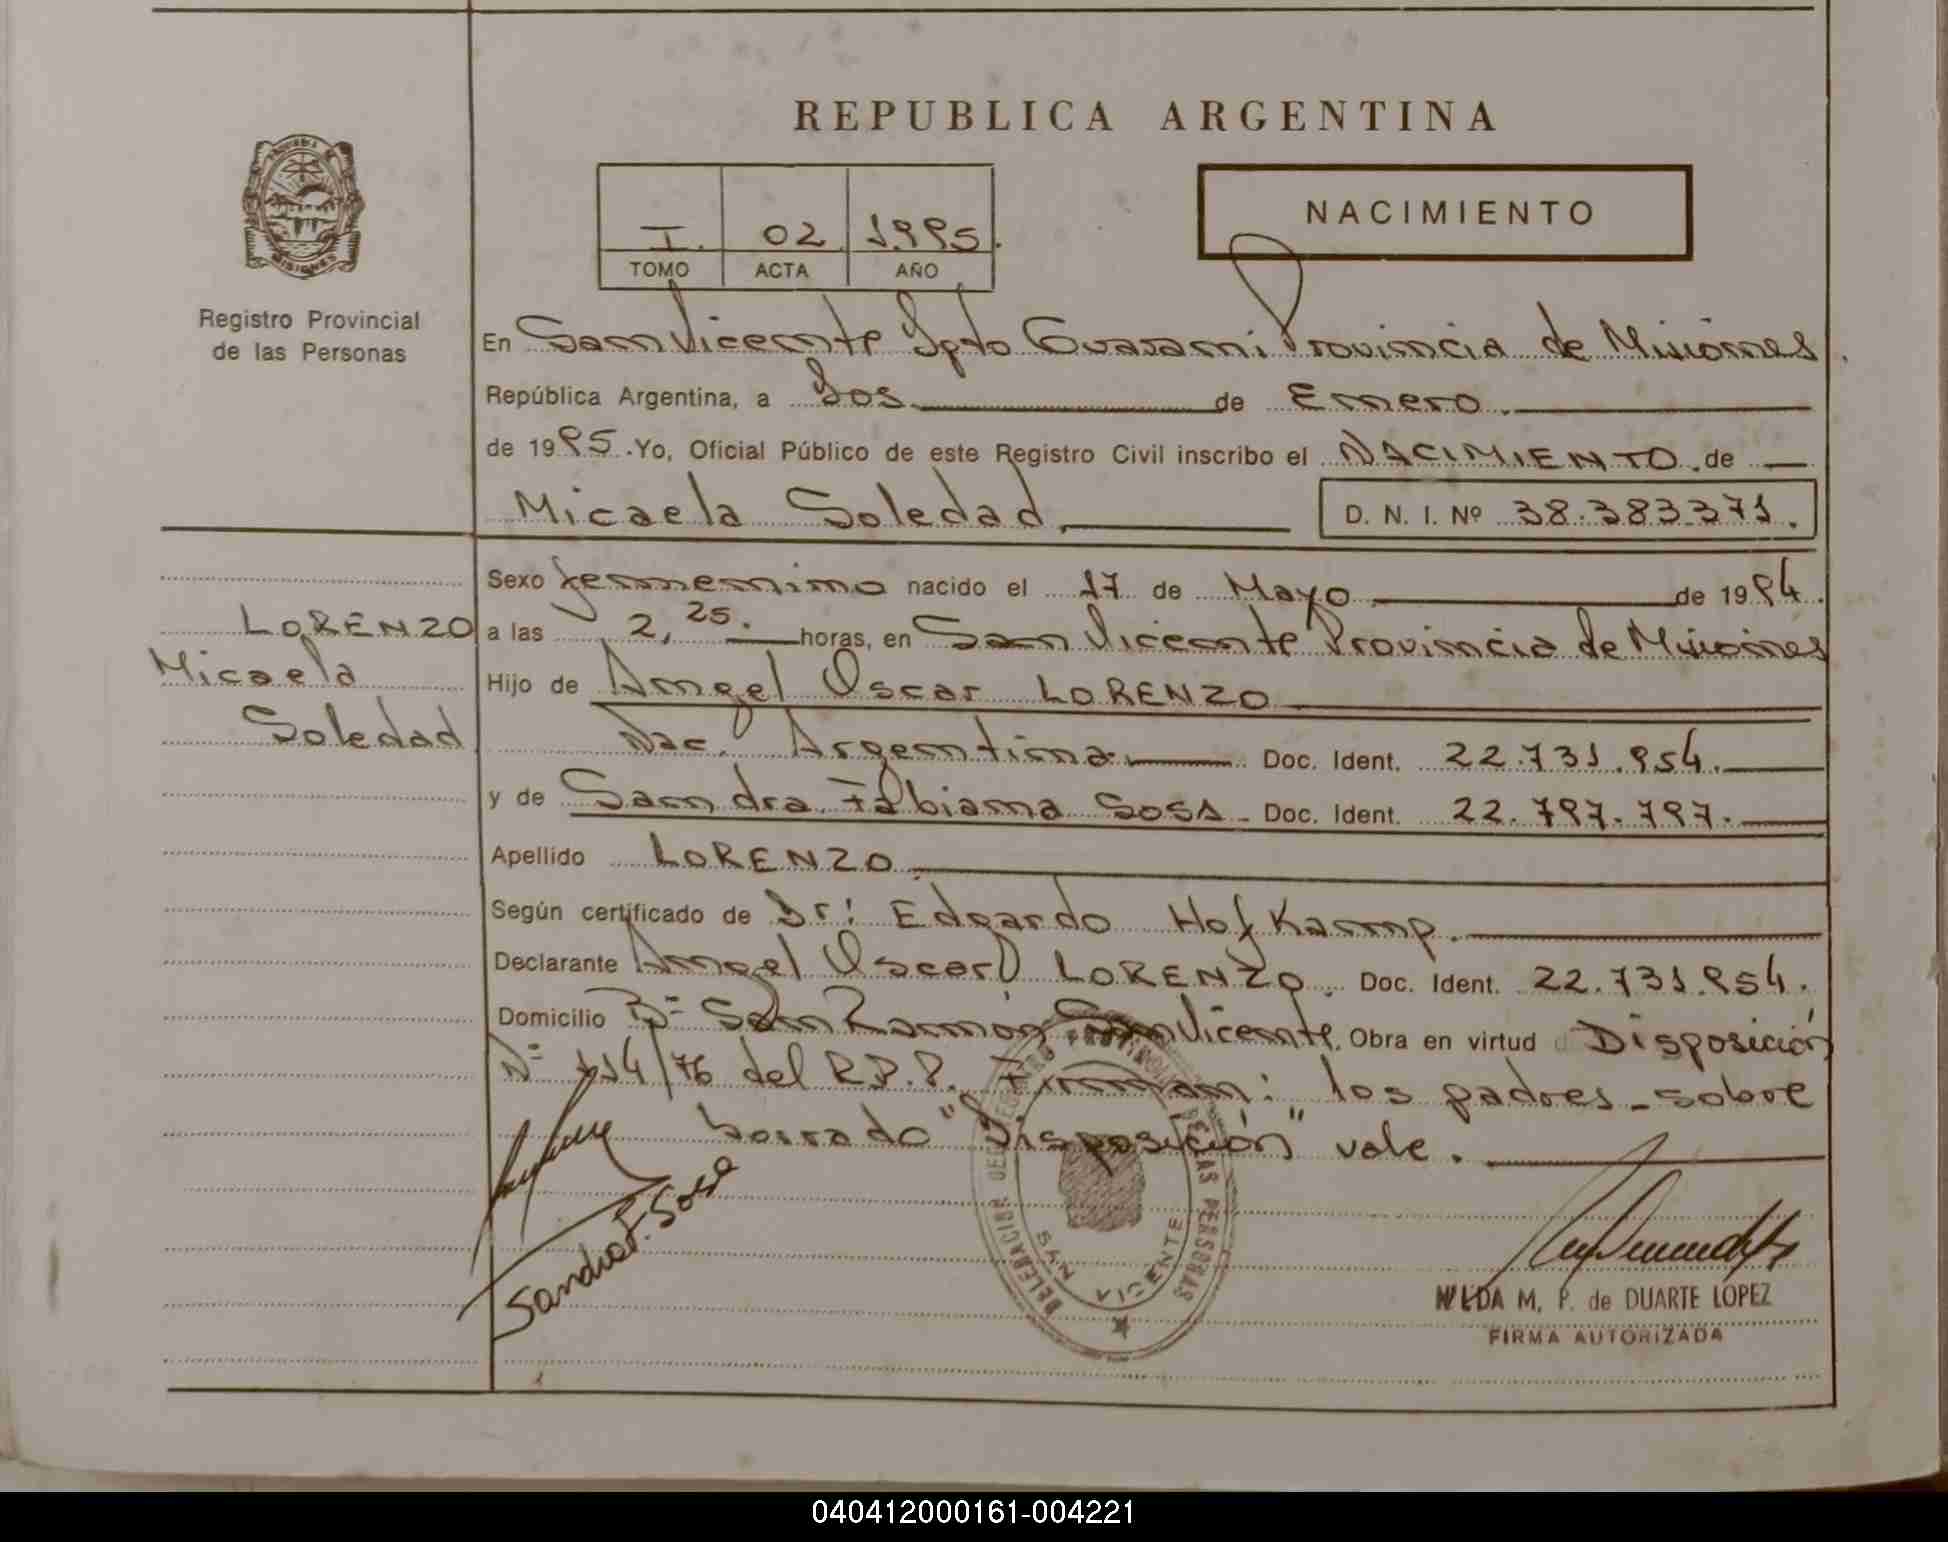 REPUBLICA ARGENTINA
PROVINCIA DE
MISIONES
Registro Provincial
de las Personas
I. 02 1995.
TOMO ACTA AÑO
NACIMIENTO
En San Vicente Dpto Guarani Provincia de Misiones
República Argentina, a Dos de Enero.
de 1995. Yo, Oficial Público de este Registro Civil inscribo el NACIMIENTO. de
Micaela Soledad. D. N. I. Nº 38.383.371.
LORENZO
Micaela
Soledad
Sexo femenino nacido el 17 de Mayo de 1994.
a las 2,25. horas, en San Vicente Provincia de Misiones
Hijo de Angel Oscar LORENZO
Nac. Argentina Doc. Ident. 22.731.954.
y de Sandra Fabiana SOSA Doc. Ident. 22.797.797.
Apellido LORENZO
Según certificado de Dr: Edgardo Hofkamp.
Declarante Angel Oscar LORENZO. Doc. Ident. 22.731.954.
Domicilio Bº San Ramón San Vicente. Obra en virtud Disposición
Nº 114/76 del R.P.P. Firman: los padres - sobre
borrado "Disposición" vale.
Sandra F. Sosa
DELEGACION DEL REGISTRO PROVINCIAL DE LAS PERSONAS
SAN VICENTE
NILDA M. P. de DUARTE LOPEZ
FIRMA AUTORIZADA
040412000161-004221